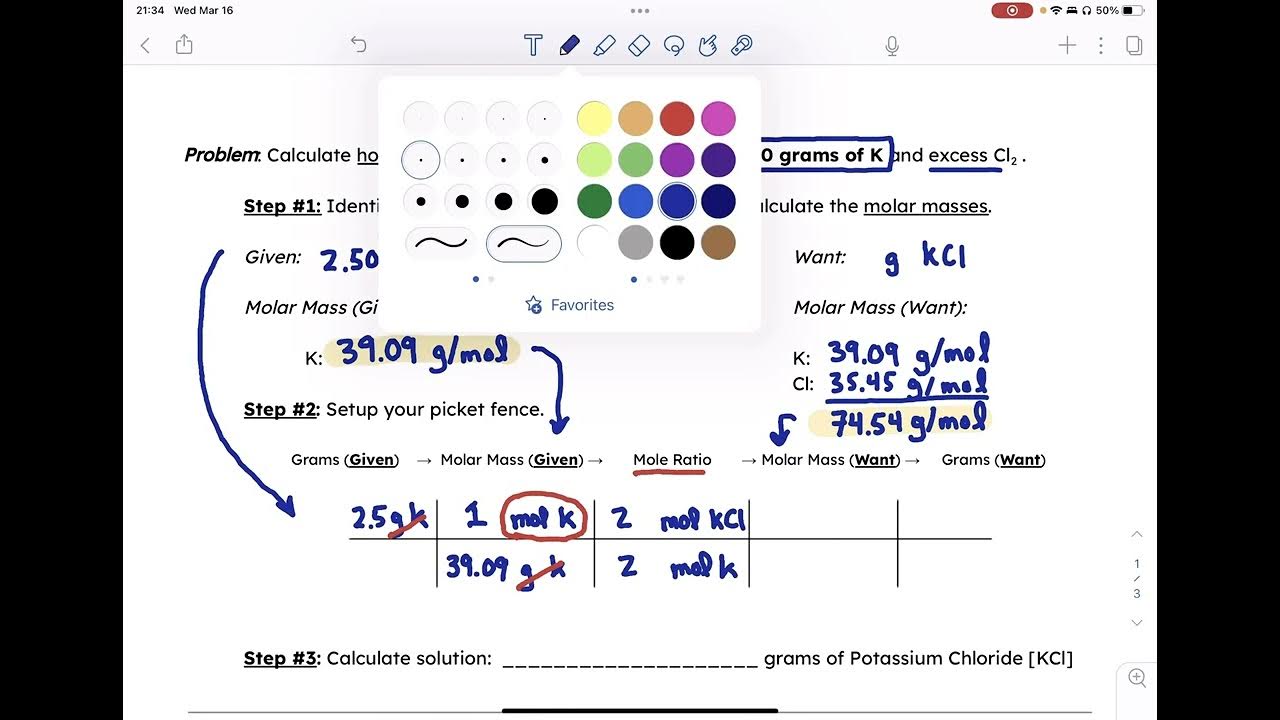 21:34 Wed Mar 16 50%
T
Problem: Calculate ho 0 grams of K and excess Cl₂ .
Step #1: Identi lculate the molar masses.
Given: 2.50 Want: g KCl
Favorites
Molar Mass (Gi Molar Mass (Want):
K: 39.09 g/mol K: 39.09 g/mol
Cl: 35.45 g/mol
Step #2: Setup your picket fence. 74.54 g/mol
Grams (Given) → Molar Mass (Given) → Mole Ratio → Molar Mass (Want) → Grams (Want)
2.5 g k 1 mol k 2 mol KCl
39.09 g k 2 mol k
1
/
3
Step #3: Calculate solution: ____________________ grams of Potassium Chloride [KCl]